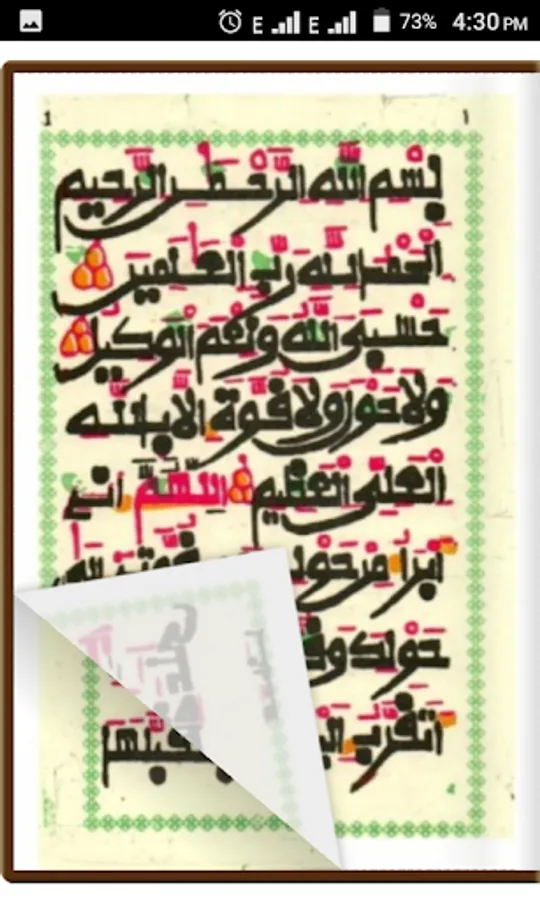 E E 73% 4:30 PM
1 ١
بسم الله الرحمٰن الرحيم
الحمد لله رب العٰلمين
حسبي الله ونعم الوكيل
ولا حول ولا قوة إلا بالله
العلي العظيم اللهم إني
أبرأ من
حولك
أتقرب